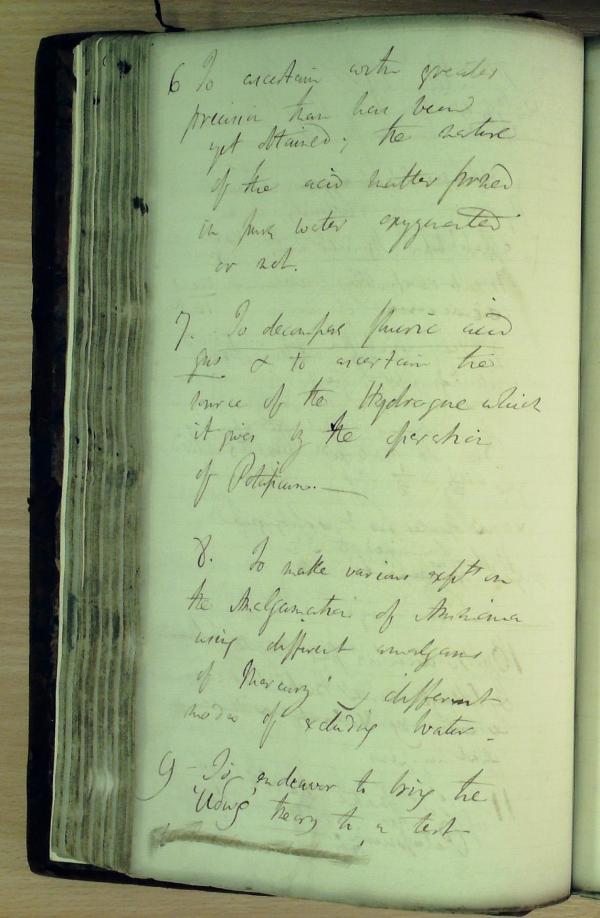 6 To ascertain with greater
precision than has been
yet obtained; the nature
of the acid matter formed
in pure water oxygenated
or not.
7. To decompose fluoric acid
gas & to ascertain the
source of the Hydrogene which
it gives by the operation
of Potassium.—
8. To make various expts on
the Amalgamation of Ammonia
using different amalgams
of Mercury & different
modes of excluding water -
9 - To endeavor to bring the
theory to a test